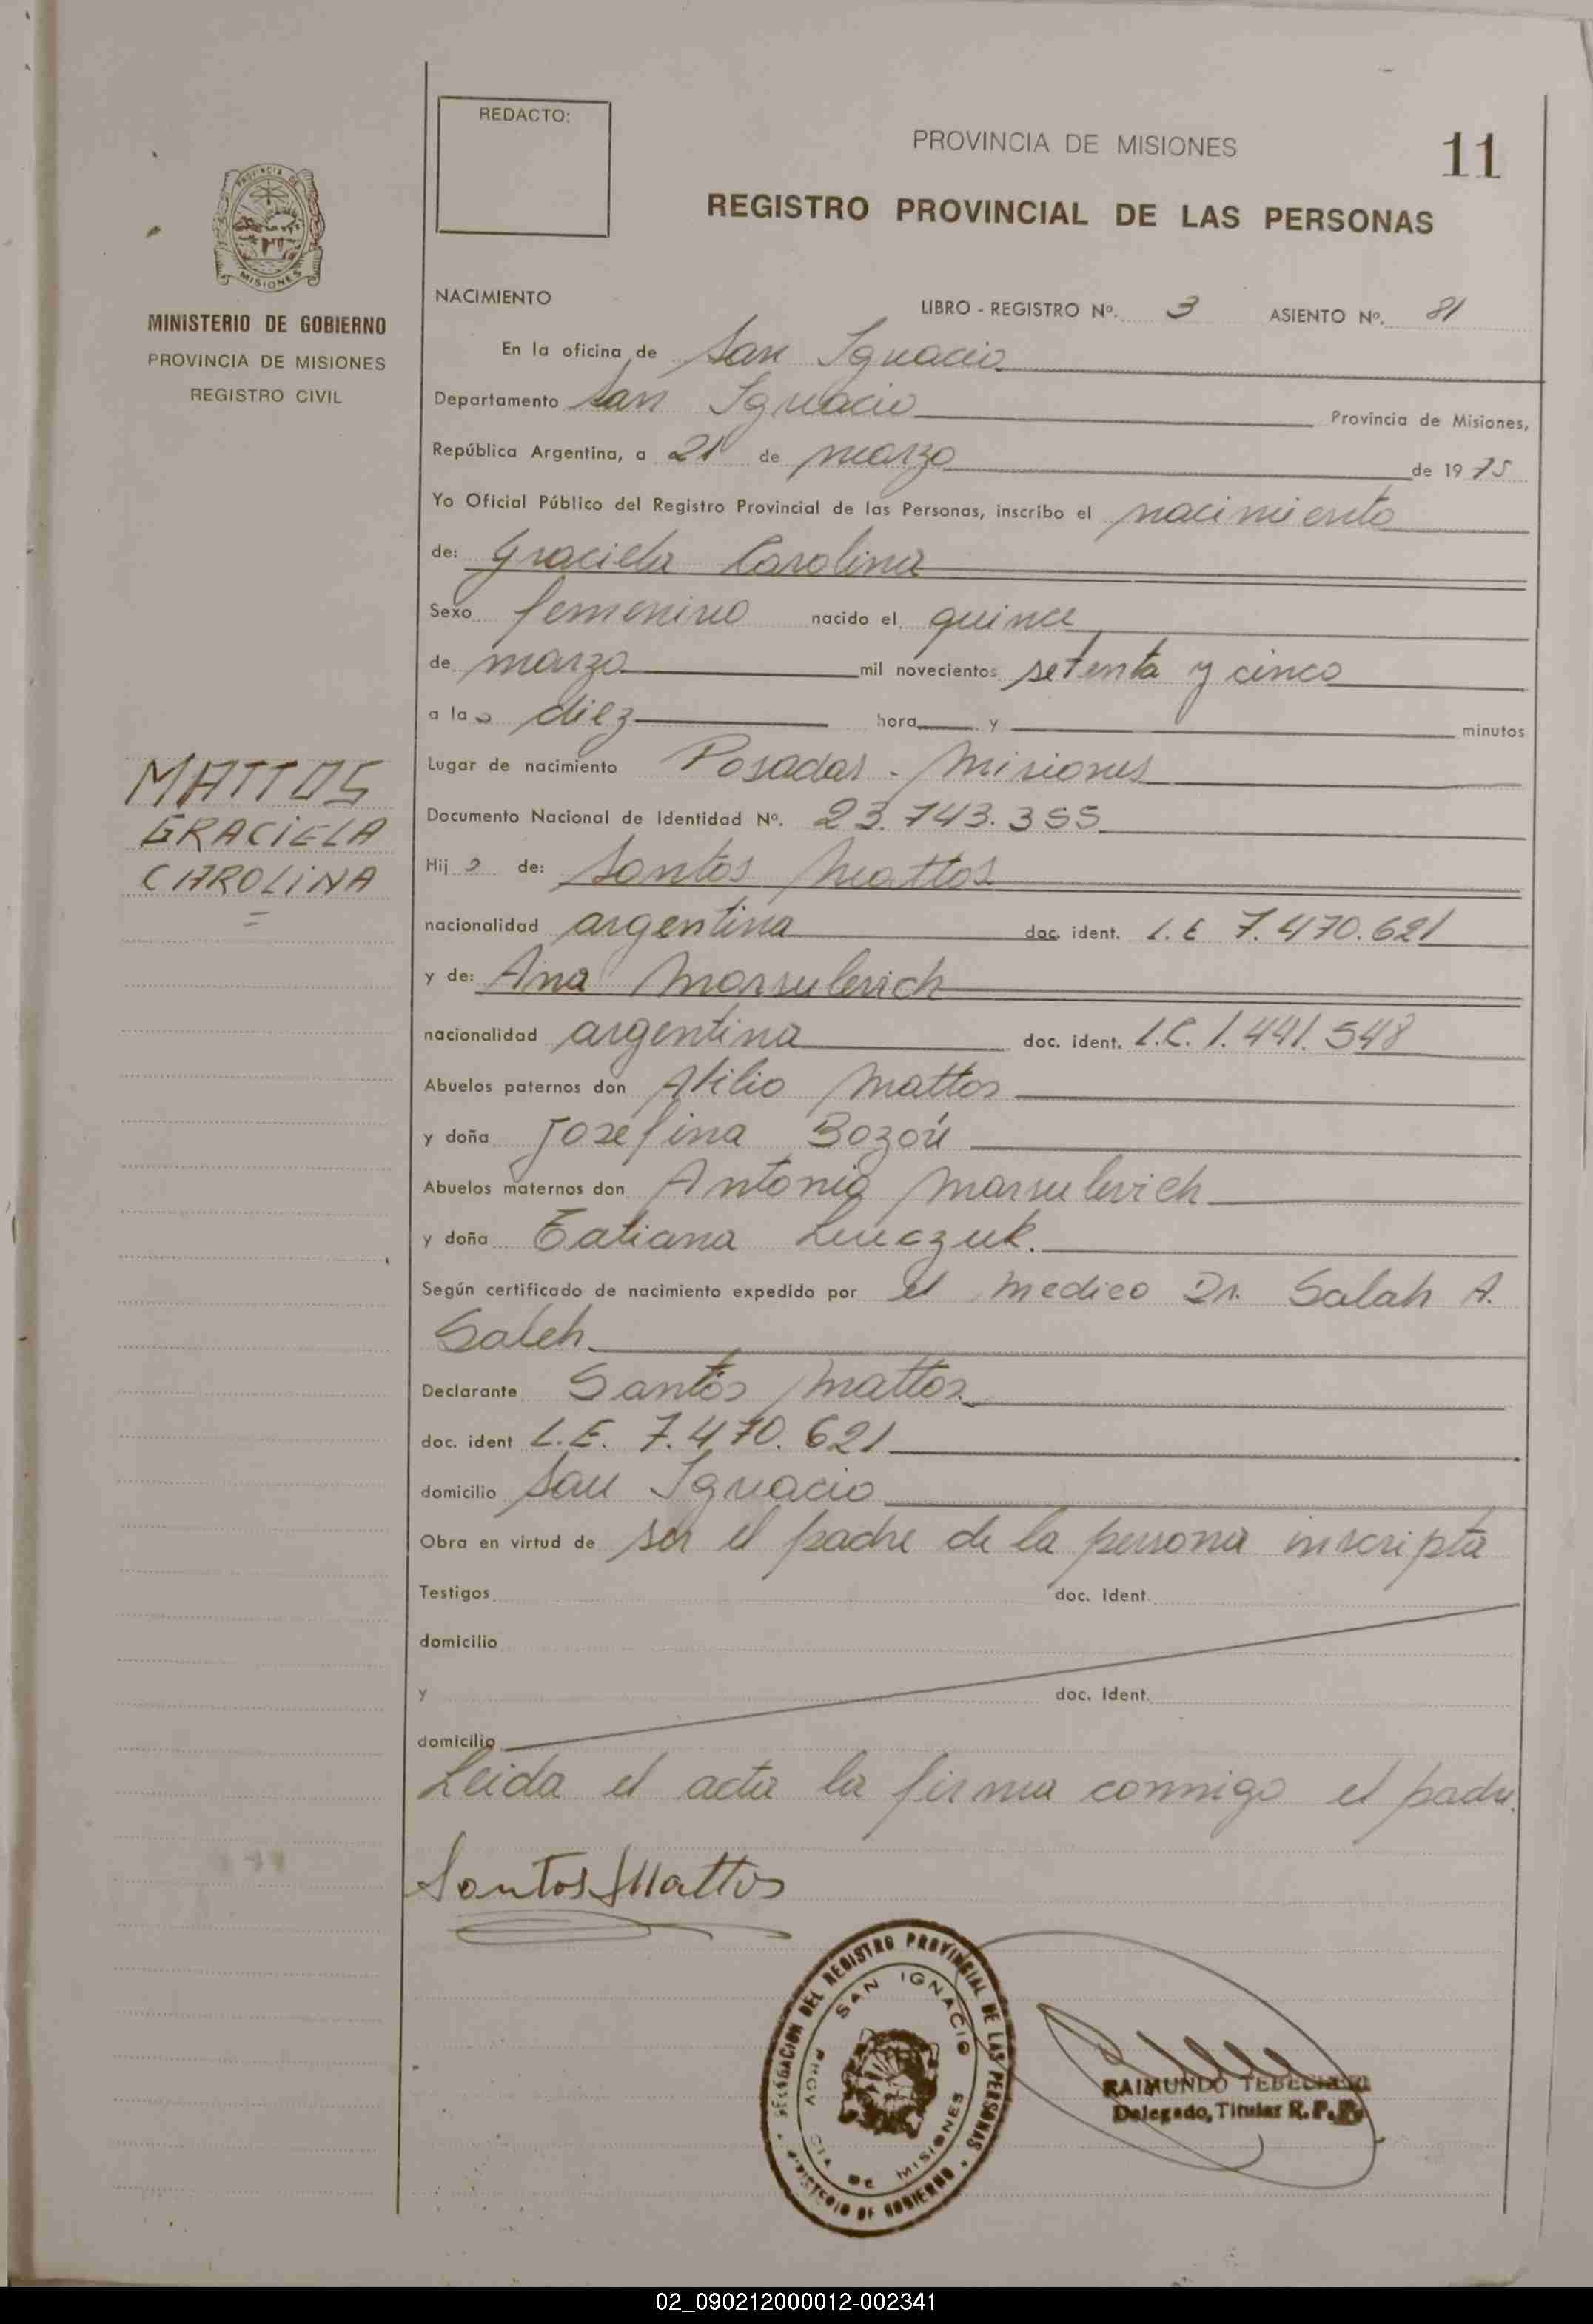 REDACTO:
PROVINCIA DE MISIONES
11
REGISTRO PROVINCIAL DE LAS PERSONAS
PROVINCIA DE
MISIONES
MINISTERIO DE GOBIERNO
PROVINCIA DE MISIONES
REGISTRO CIVIL
MATTOS
GRACIELA
CAROLINA
=
NACIMIENTO LIBRO - REGISTRO Nº. 3 ASIENTO Nº. 81
En la oficina de San Ignacio
Departamento San Ignacio Provincia de Misiones,
República Argentina, a 21 de marzo de 1975
Yo Oficial Público del Registro Provincial de las Personas, inscribo el nacimiento
de: Graciela Carolina
Sexo femenino nacido el quince
de marzo mil novecientos setenta y cinco
a las diez hora y minutos
Lugar de nacimiento Posadas - Misiones
Documento Nacional de Identidad Nº. 23.743.355
Hija de: Santos Mattos
nacionalidad argentina doc. ident. L.E 7.470.621
y de: Ana Marsulevich
nacionalidad argentina doc. ident. L.C. 1.441.548
Abuelos paternos don Atilio Mattos
y doña Josefina Bozón
Abuelos maternos don Antonio Marsulevich
y doña Tatiana
Según certificado de nacimiento expedido por el Medico Dr. Salah A.
Saleh
Declarante Santos Mattos
doc. ident L.E. 7.470.621
domicilio San Ignacio
Obra en virtud de ser el padre de la persona inscripta
Testigos doc. Ident.
domicilio
y doc. Ident.
domicilio
Leida el acta la firma conmigo el padre.
Santos Mattos
DELEGACION DEL REGISTRO PROVINCIAL DE LAS PERSONAS
MINISTERIO DE GOBIERNO
SAN IGNACIO
PROVINCIA DE MISIONES
RAIMUNDO
Delegado, Titular R. P. P.
02_090212000012-002341